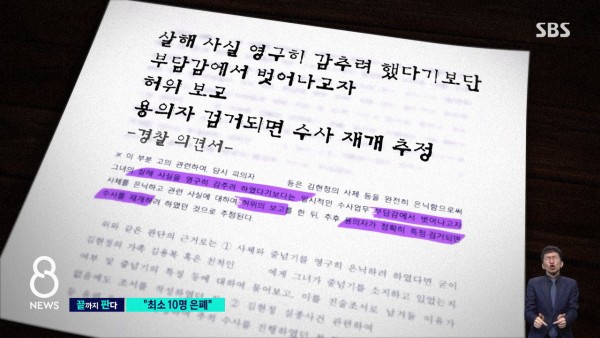 SBS
살해 사실 영구히 감추려 했다기보단
부담감에서 벗어나고자
허위 보고
용의자 검거되면 수사 재개 추정
-경찰 의견서-
※ 이 부분 고의 관련하여, 당시 피의자 등은 김현정의 사체 등을 완전히 은닉함으로써
그녀의 살해 사실을 영구히 감추려 하였다기보다는 일시적인 수사업무 부담감에서 벗어나고자
사체를 은닉하고 관련 사실에 대하여 허위의 보고를 한 뒤, 추후 용의자가 정확히 특정 검거되면
수사를 재개하려 하였던 것으로 추정된다
위와 같은 판단의 근거로는 ① 사체와 줄넘기를 영구히 은닉하려 하였다면 굳이
김현정의 가족 김용복 혹은 친척인 에게 그녀가 줄넘기를 소지하고 있었는지
여부 및 줄넘기의 특징 등에 대하여 물어보고, 이를 진술조서로 남겨둘 이유가
없음에도 조서를 작성하였던 ② 김현정 실종사건 관련하여
수사를 진행하였던
8
NEWS
끝까지 판다
"최소 10명 은폐"